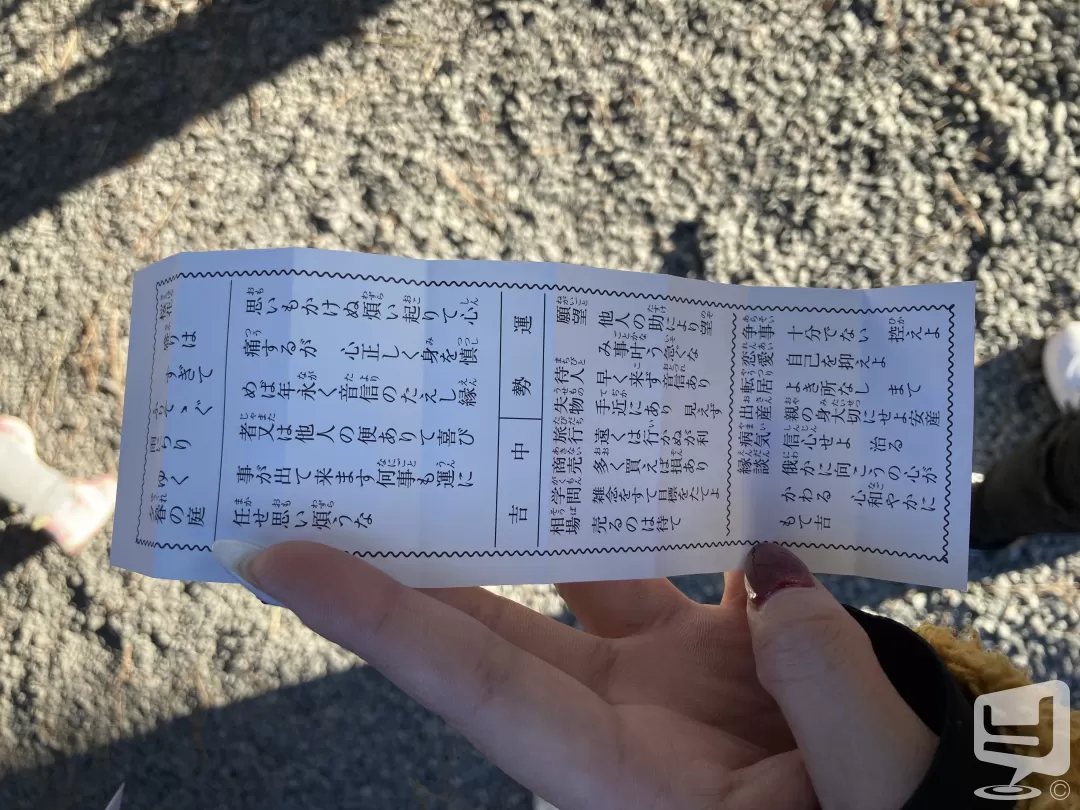 は
すぎて
の庭
思いもかけぬ煩い起りて心
痛するが 心正しく身を慎
めば年永く音信のたえし縁
者又は他人の便ありて喜び
事が出て来ます何事も運に
任せ思い煩うな
運勢 中吉
願望 他人の助により望み事叶う急ぐな
待人 早く来ず音信あり
失物 手近にあり 見えず
旅行 遠くは行かぬが利
商売 多く買えば損あり
学問 雑念をすて目標をたてよ
相場 売るのは待て
争事 十分でない 控えよ
恋愛 自己を抑えよ
転居 よき所なし まて
出産 親の身大切にせよ安産
病気 信心せよ 治る
縁談 俄かに向こうの心がかわる 心和やかにもて吉